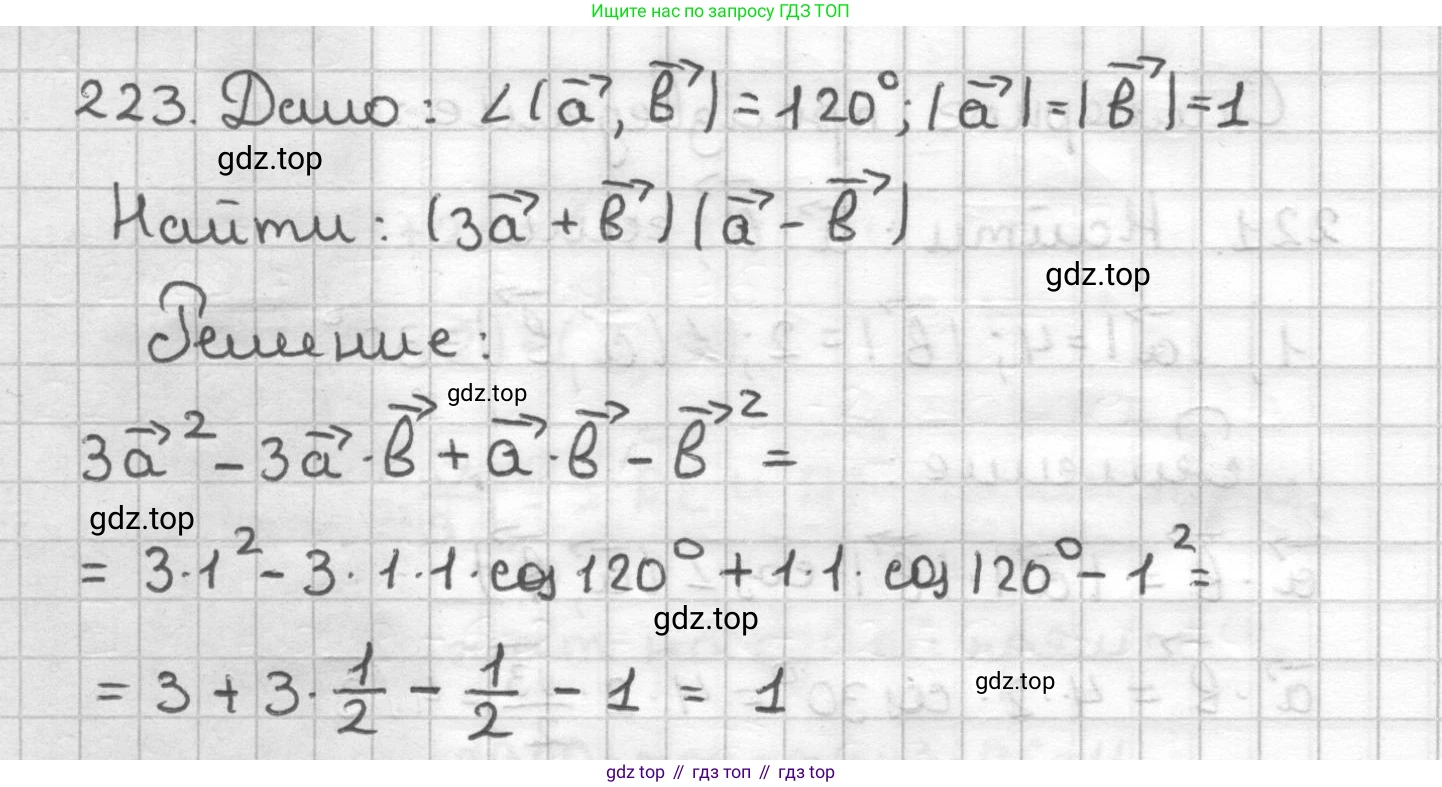 Ищите нас по запросу ГДЗ ТОП
223. Дано: ∠(a⃗, b⃗) = 120°; |a⃗| = |b⃗| = 1
gdz.top
Найти: (3a⃗ + b⃗)(a⃗ - b⃗)
gdz.top
Решение:
gdz.top
3a⃗² - 3a⃗·b⃗ + a⃗·b⃗ - b⃗² =
gdz.top
= 3·1² - 3·1·1·cos120° + 1·1·cos120° - 1² =
gdz.top
= 3 + 3·1/2 - 1/2 - 1 = 1
gdz.top
gdz top // гдз топ // гдз top